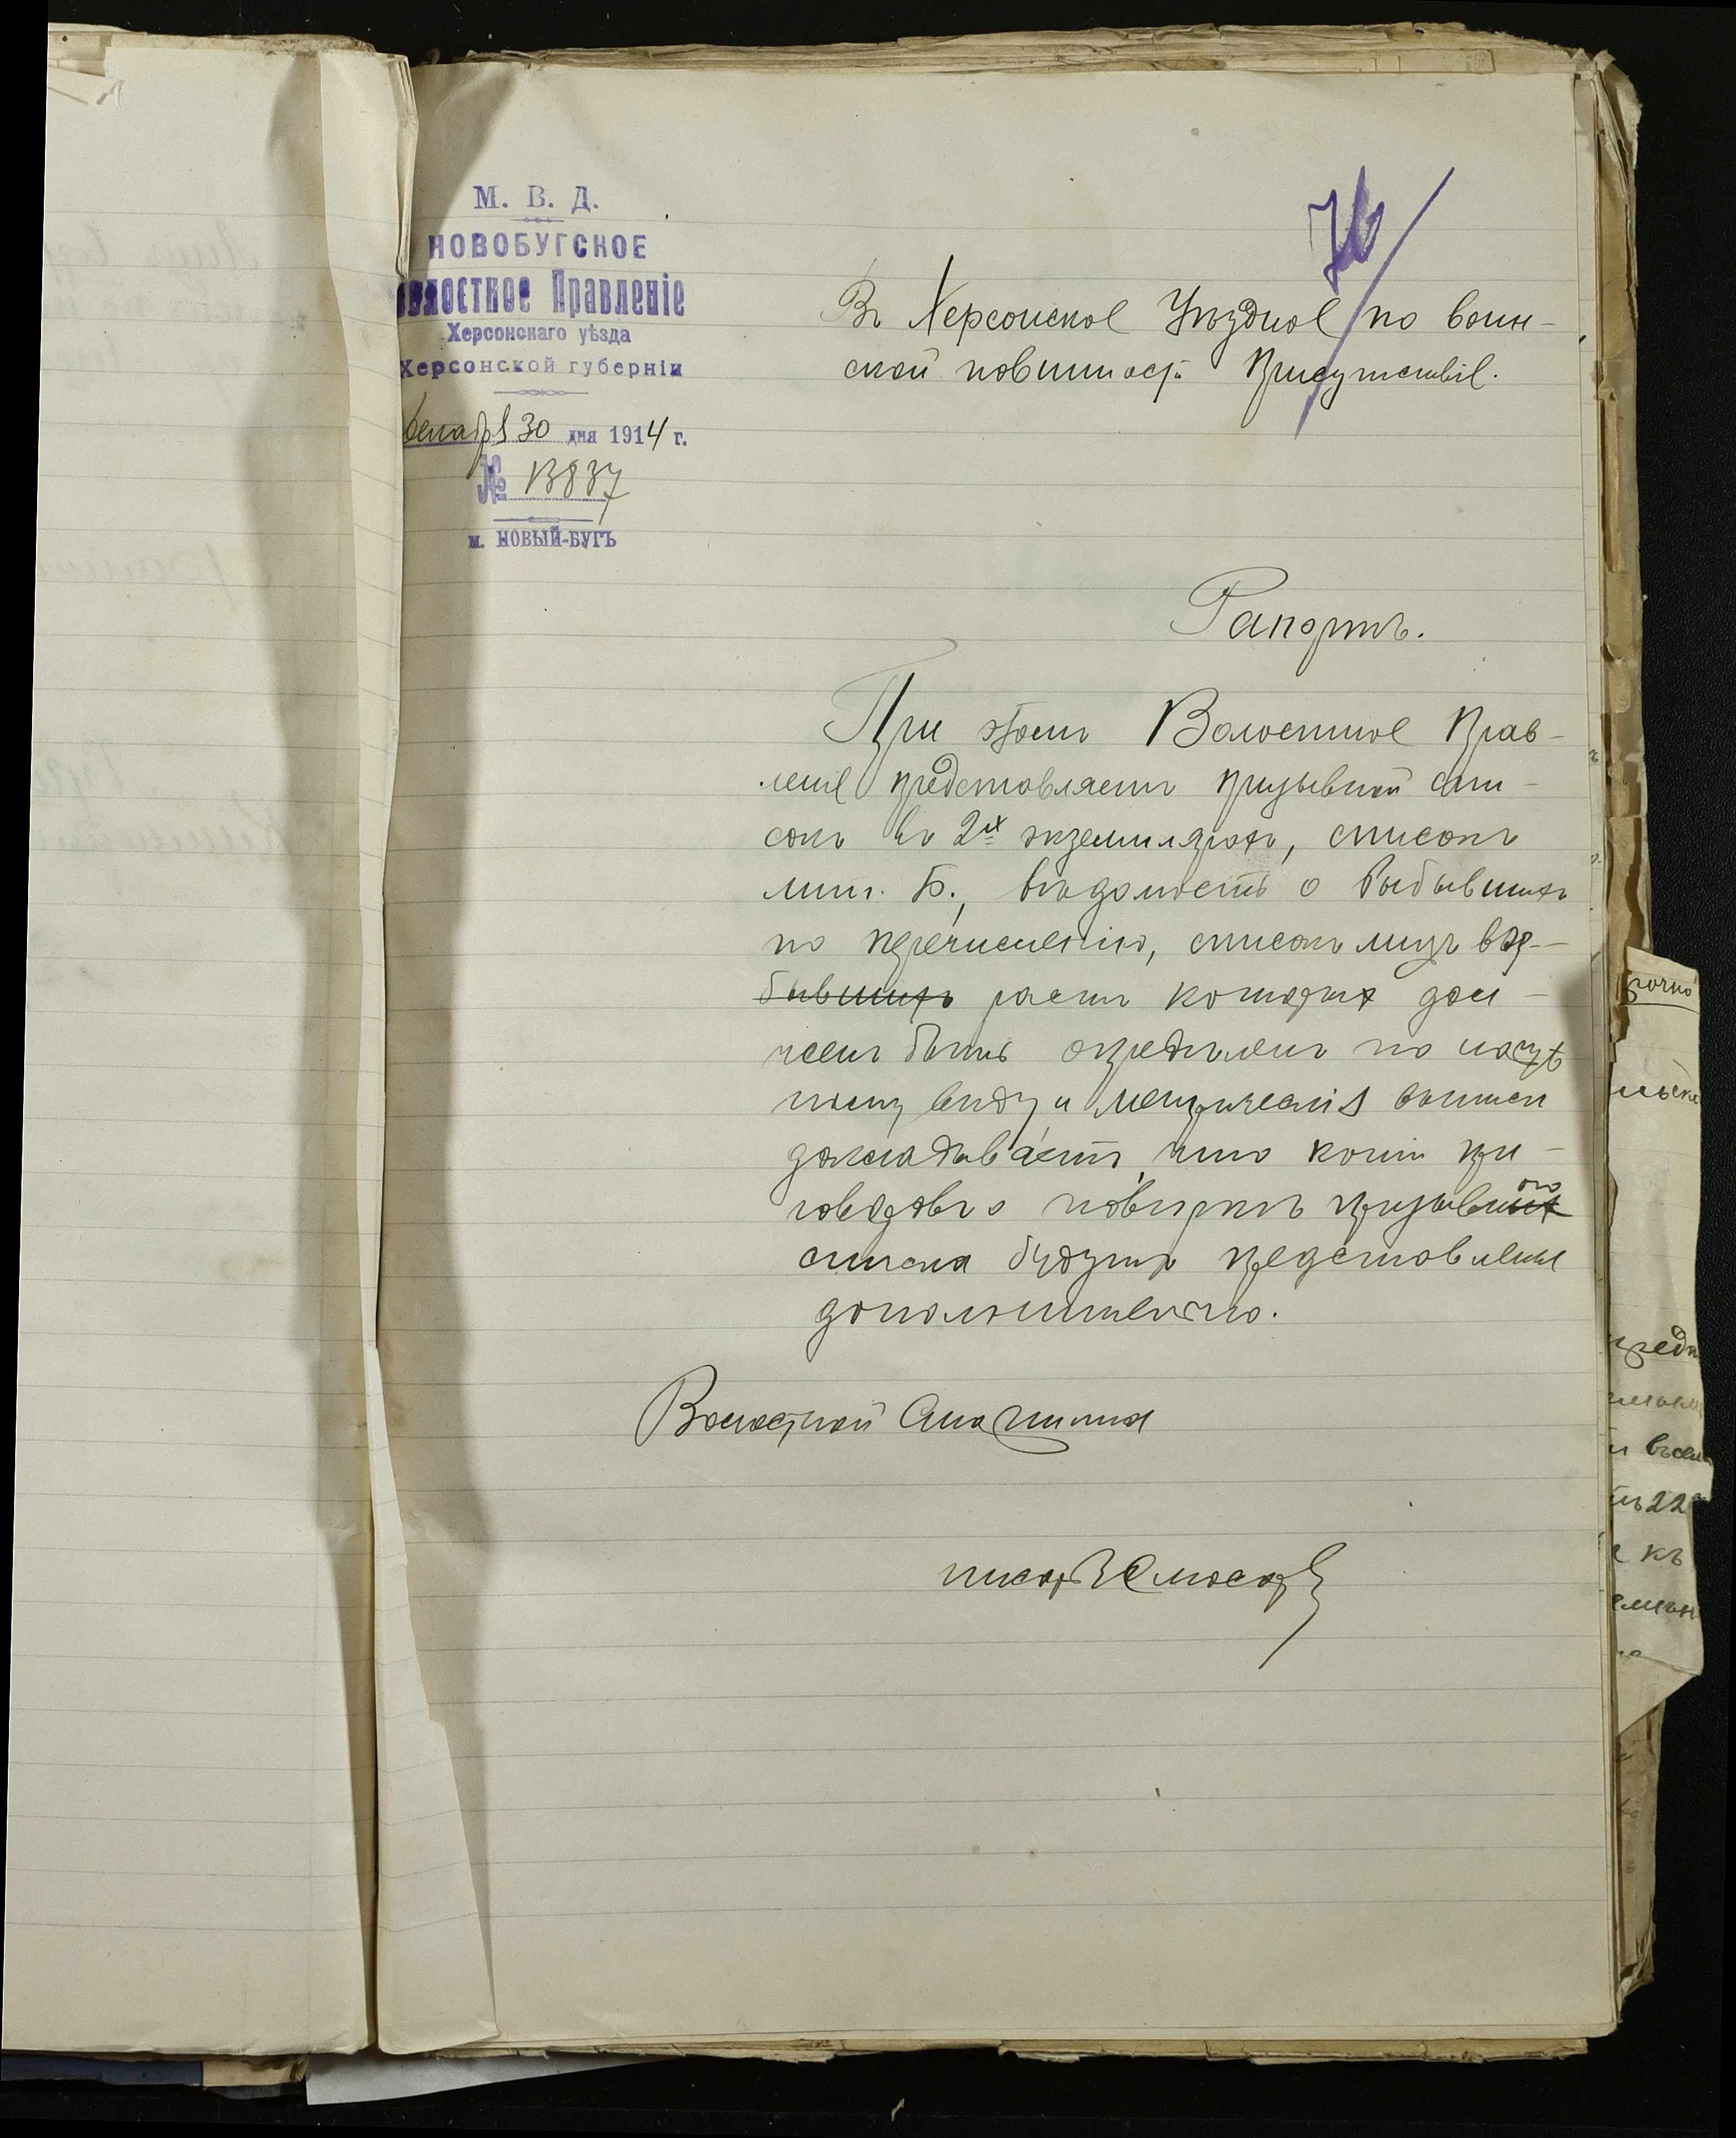 М. В. Д.
НОВОБУГСКОЕ
Волостное Правленіе
Херсонскаго уѣзда
Херсонской губерніи
Декабря 30 дня 1914 г.
№ 13837
м. НОВЫЙ-БУГЪ
76
Въ Херсонское Уѣздное по воин-
ской повинности Присутствіе.
Рапортъ.
При этомъ Волостное Прав-
леніе представляетъ призывной спи-
сокъ въ 2х экземплярахъ, списокъ
лит. Б., вѣдомость о выбывшихъ
по перечисленію, списокъ лицъ воз-
бывшихъ растъ которых дол-
женъ быть опредѣленъ по наруж
ному виду и метрическія выписи
докладываетъ, что копіи при-
говоровъ о повѣркѣ призывного
списка будутъ представлены
дополнительно.
Волостной Старшина
писарь
рочно
предп
22
къ